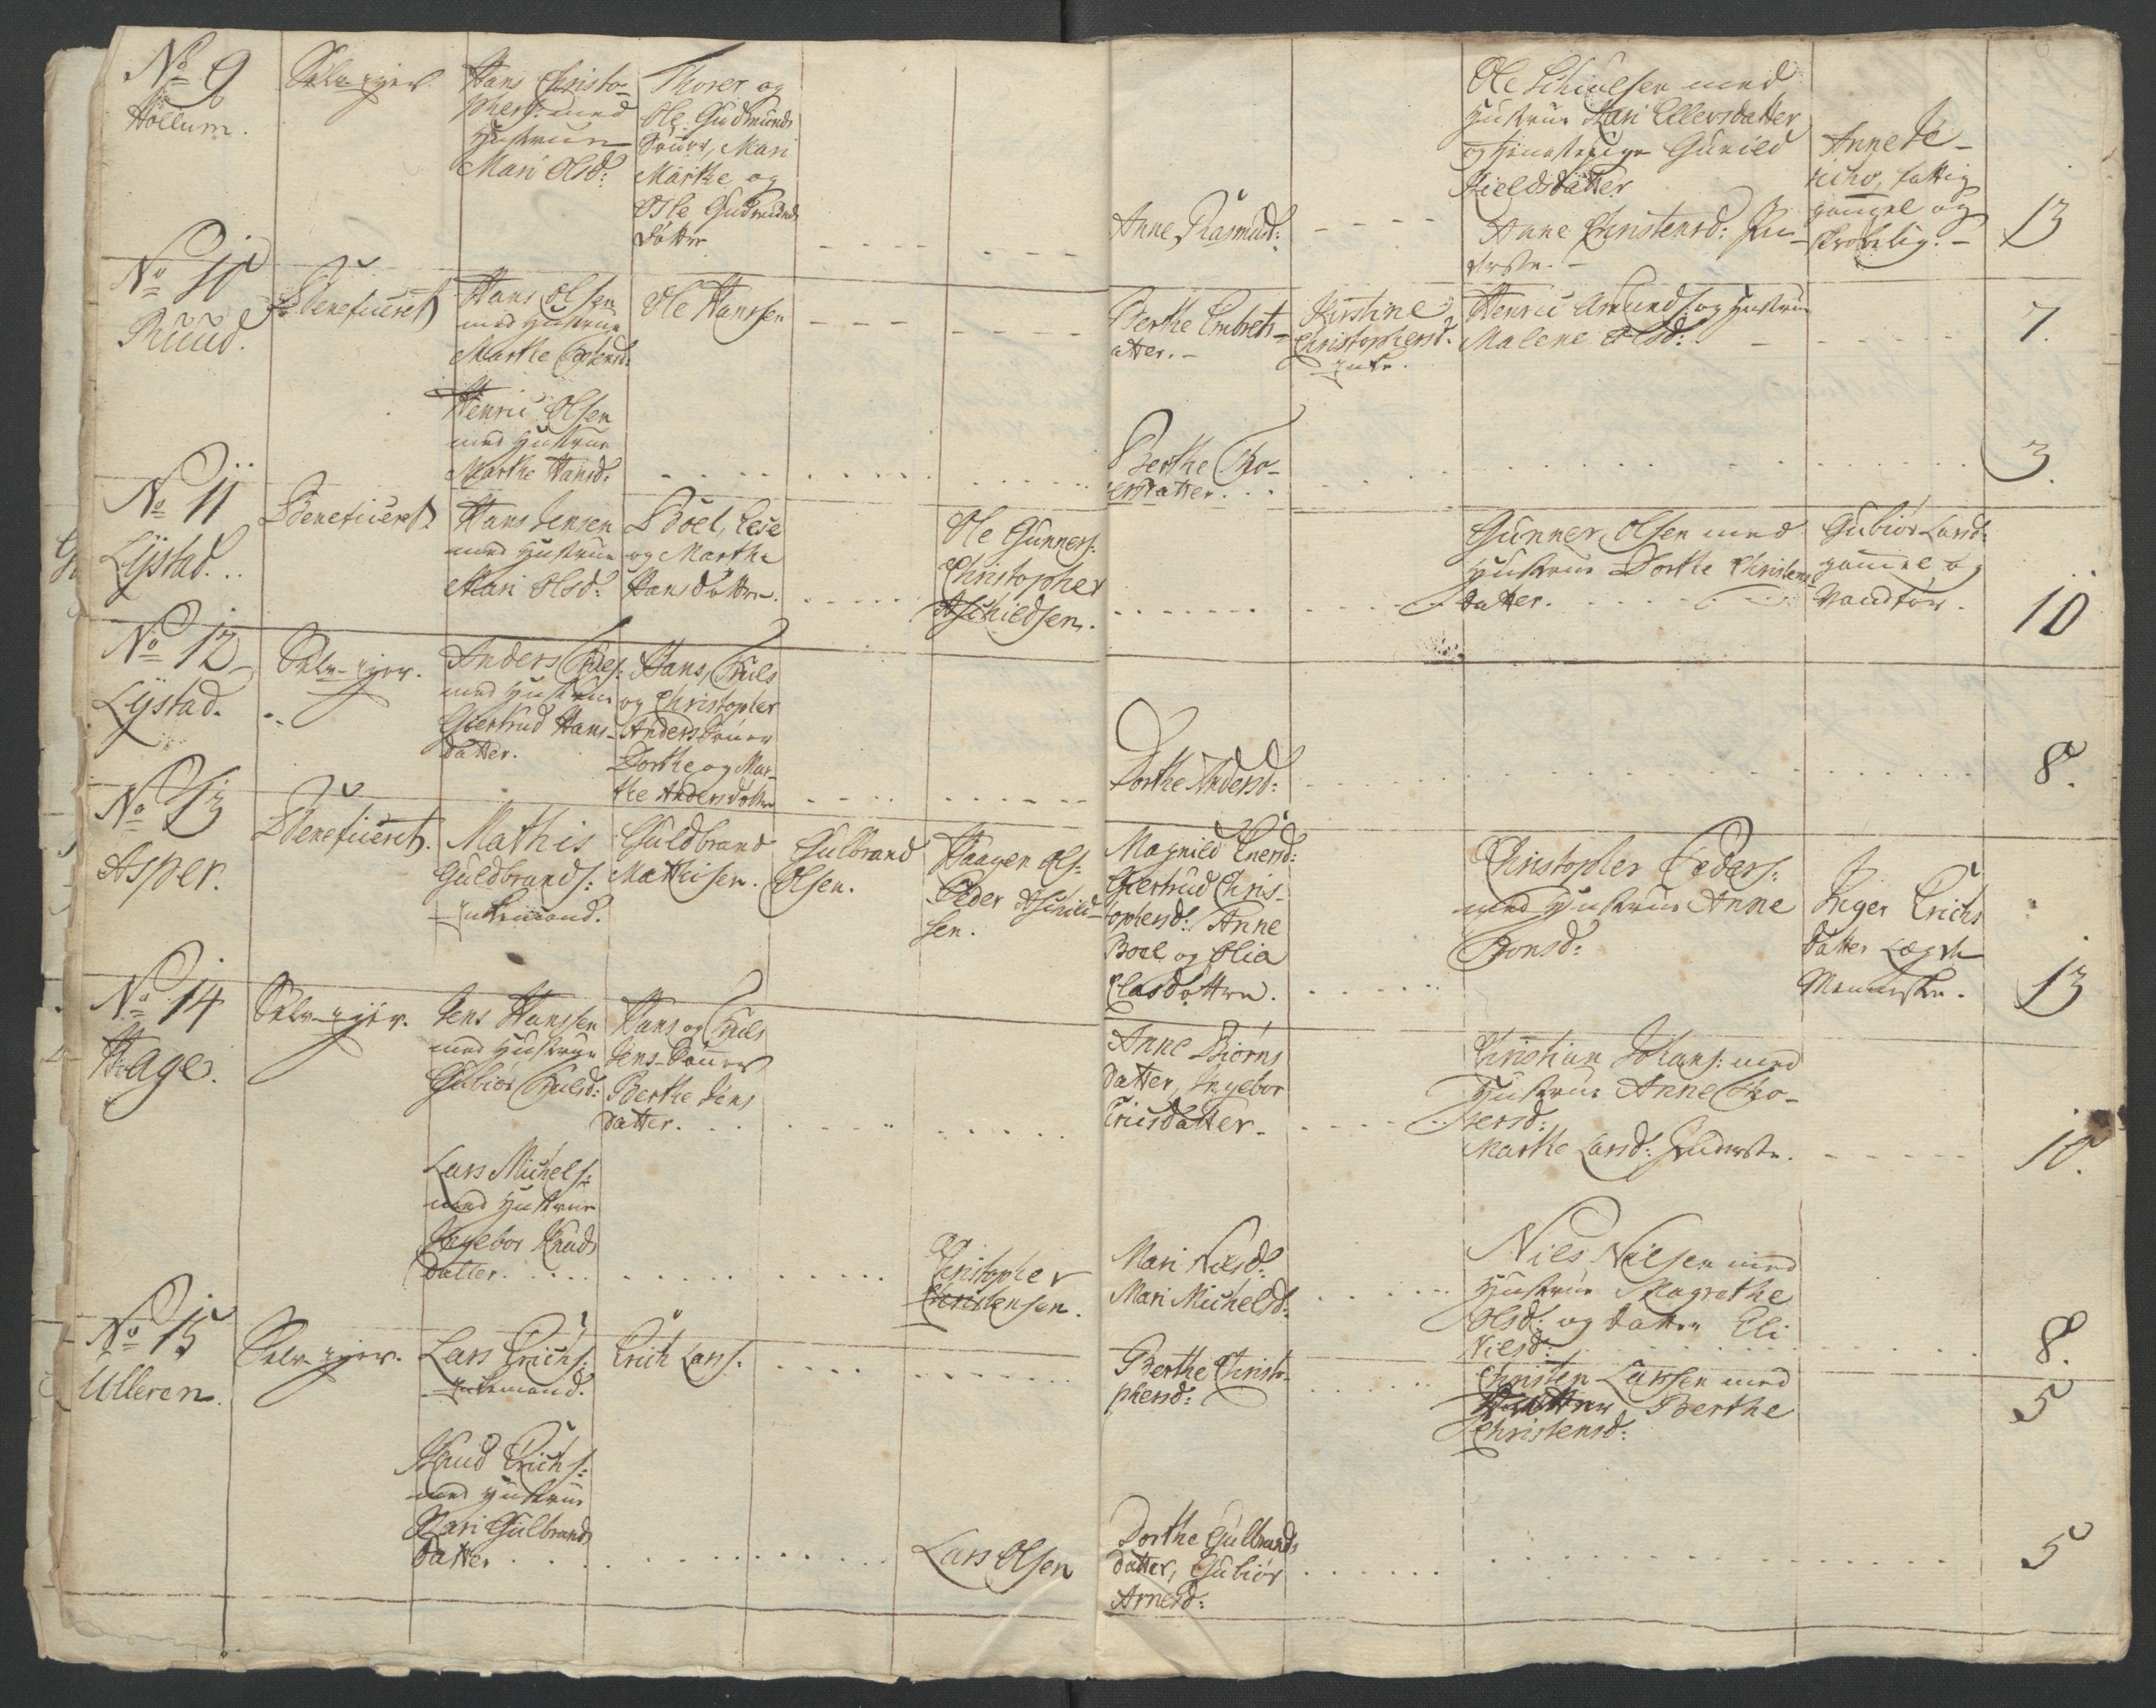 No 9
Hollum.
Selv-ejer.
Hans Christo-
phers: med
Hustrue
Mari Olsd:
Thorer og
Ole Gudmunds
Sønner, Mari
Marthe og
Gudmunds
døttre
Anne Rasmusd:
Ole med
Hustrue Kari Ellersdatter
og Guriild
Kieldsdatter
Anne Christensd:
Annete
fattig
gammel og
skrøbelig.
13
No 10
Ruud.
Beneficeret
Hans Olsen
med Hustrue
Marthe
Ole Hanssen
Berthe Embrets-
atter.
Kirstine
Christophersd:
Enke.
Henric Amunds: og Hustrue
Malene Olsd:
7.
Henric Olsen
med Hustrue
Marthe Hansd:
Berthe Tho-
ersdatter.
3.
No 11
Lystad.
Beneficeret
Hans Jensen
med Hustrue
Mari Olsd:
Boel, Leie
og Marthe
Hansdøttre.
Ole Gunners:
Christopher
Aschieldsen.
Gunner Olsen med
Hustrue Dorthe Christens
datter.
Gubiør Larsd:
gammel og
Vandfør.
10
No 12
Lystad.
Selv-ejer.
Anders
med Hustrue
Giertrud Hans-
datter.
Hans, Truls
og Christopher
Anders Sønner
Dorthe og Mar-
the Andersdøttre
Dorthe Andersd:
8.
No 13
Asper.
Beneficeret.
Mathis
Guldbrands:
Enkemand.
Guldbrand
Mathisen.
Gulbrand
Olsen.
Haagen Ols:
Peder Aschield-
sen.
Magnild Enersd:
Giertrud Chris-
tophersd: Anne
Boel og Olia
Clasdøttre.
Christopher Peders:
med Hustrue Anne
Tronsd:
Inger Erichs
datter Lægds
Menniske.
13
No 14
Hage.
Selv-ejer.
Jens Hanssen
med Hustrue
Gubiør Trulsd:
Hans og Truls
Jens-Sønner
Berthe Jens
datter.
Anne Biørns
datter, Ingebor
Ericsdatter.
Christian Johans: med
Hustrue Anne Tho-
rersd:
Marthe Larsd: Inderste.
10.
Lars Michels:
med Hustrue
Ingebor Knuds
datter.
Christopher
Christensen.
Mari Nielsd:
Mari Michelsd:
Niels Nielsen med
Hustrue Magrethe
Olsd: og datter Eli
Nielsd:
8.
No 15
Ulleren.
Selv-ejer.
Lars Erichs:
Enkemand.
Erich Lars:
Berthe Christo-
phersd:
Christen Larssen med
Berthe
Christensd:
5
Knud Erichs:
med Hustrue
Kari Gulbrands
datter
Lars Olsen
Dorthe Gulbrands
datter, Gubiør
Arnesd:
5